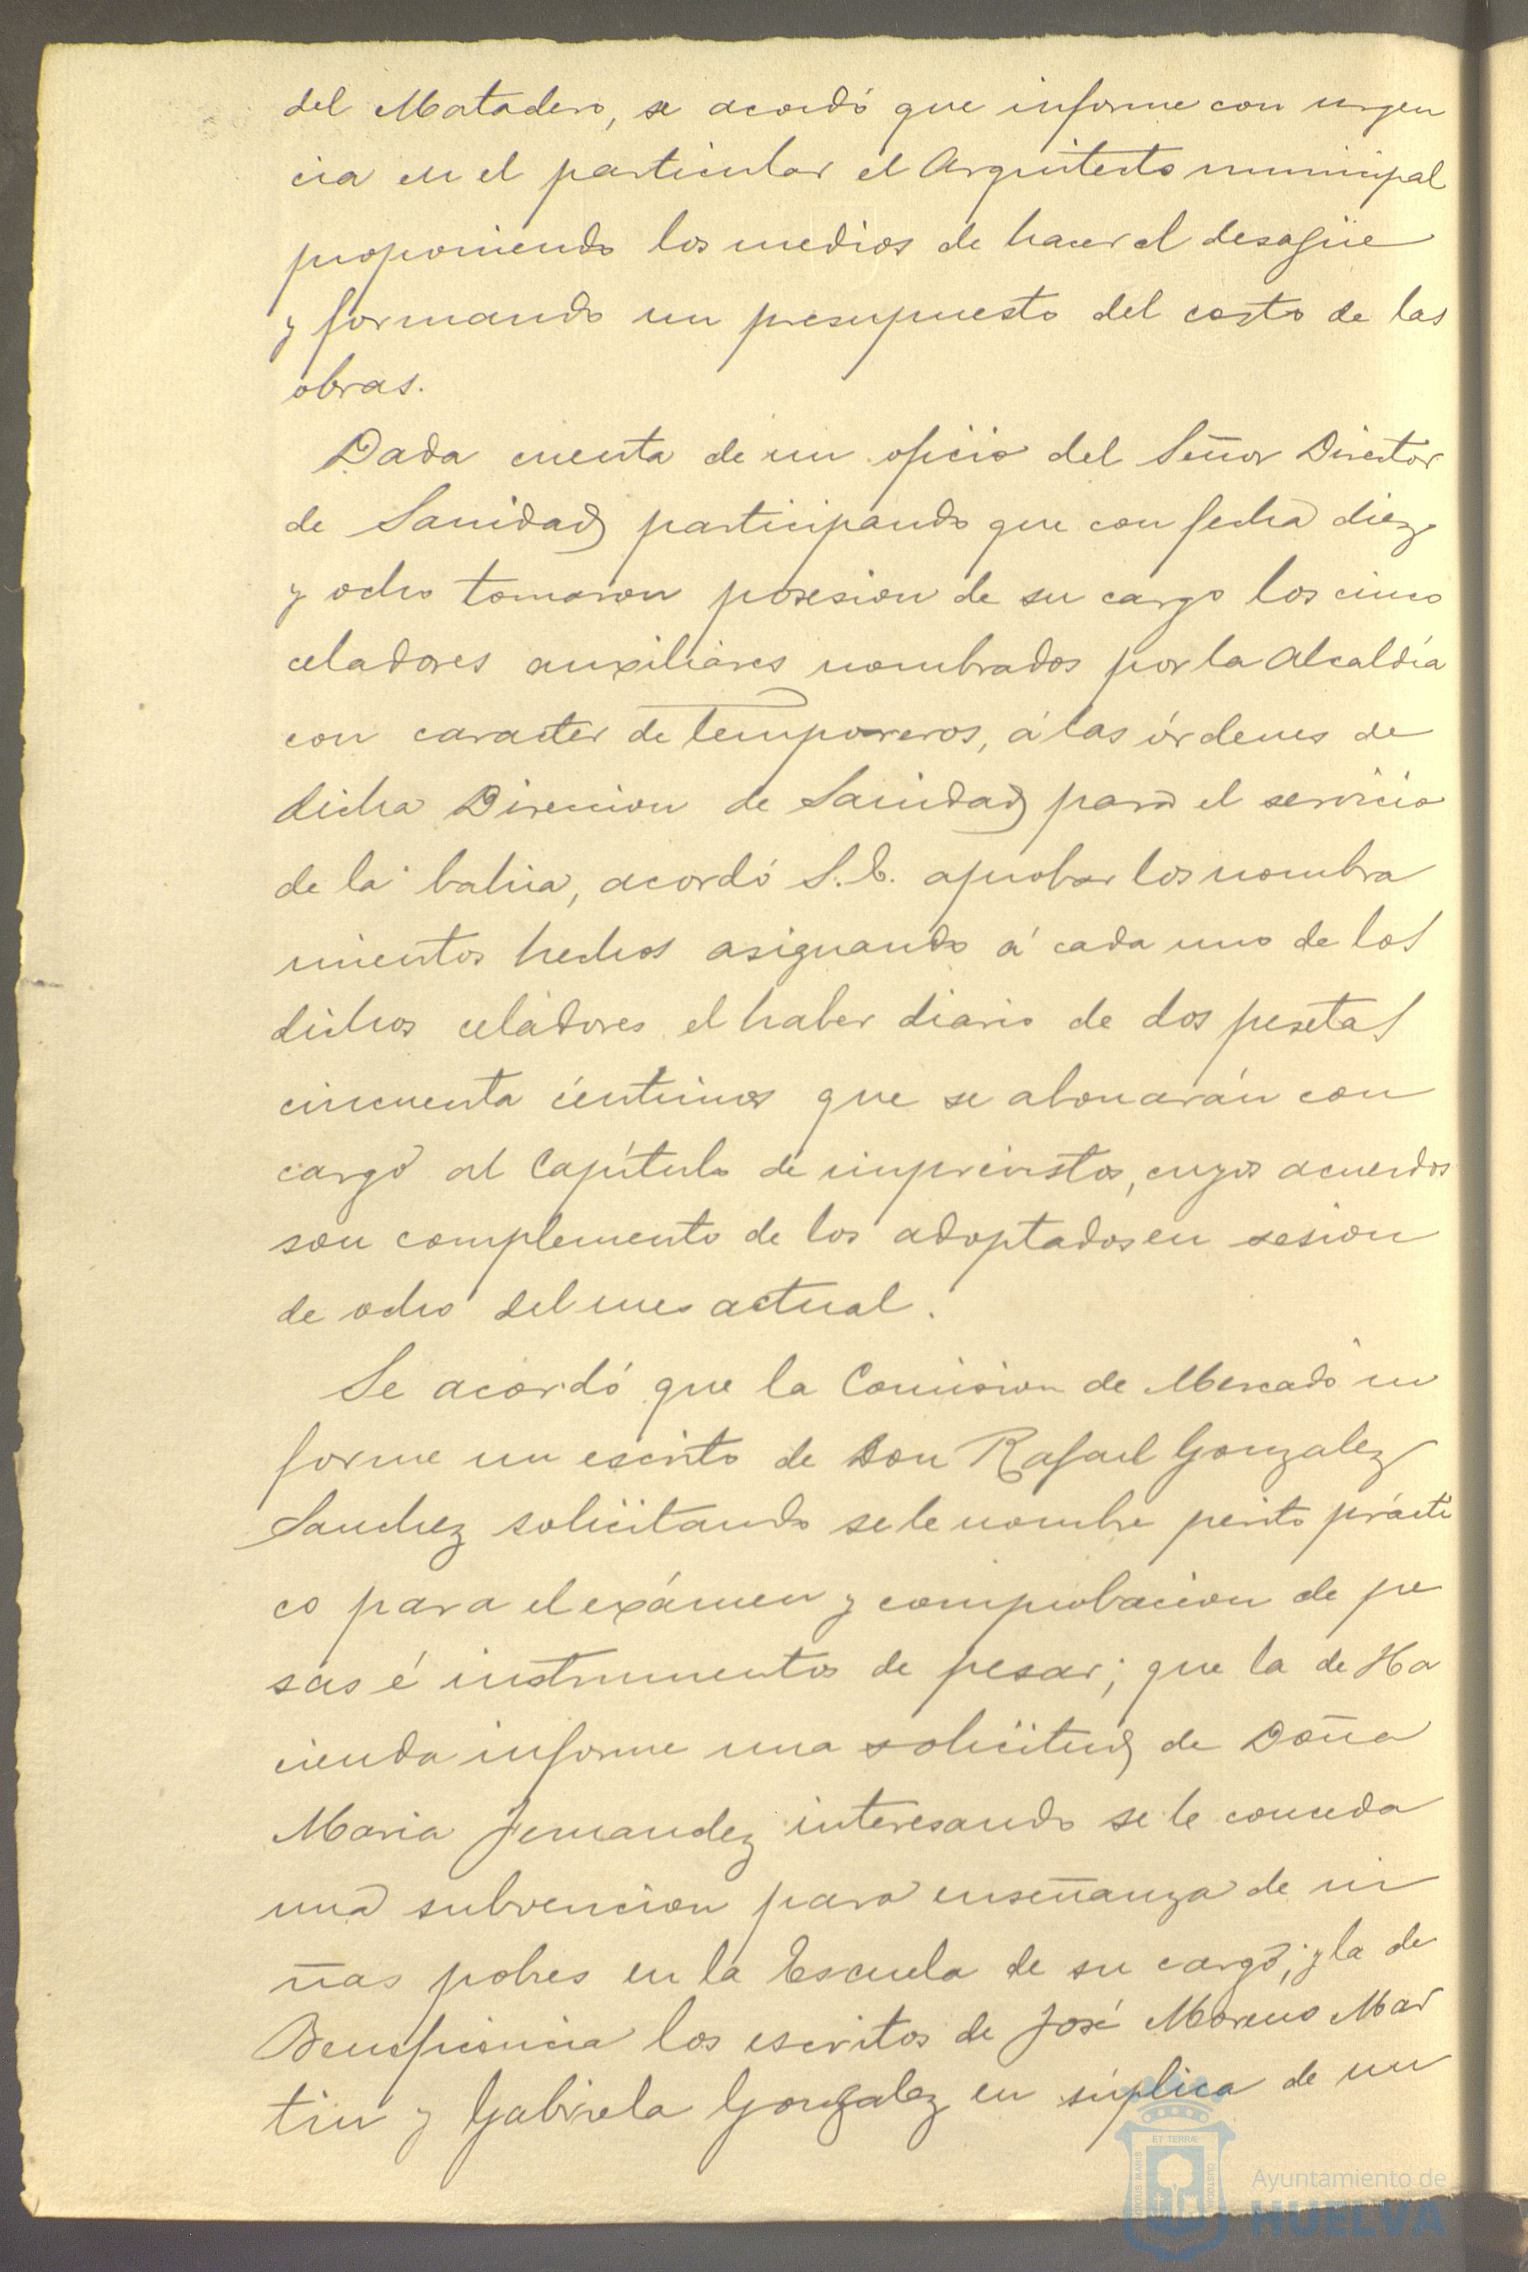 del Matadero, se acordó que informe con urgen
cia en el particular el Arquitecto municipal
proponiendo los medios de hacer el desagüe
y formando un presupuesto del costo de las
obras.
Dada cuenta de un oficio del Señor Director
de Sanidad participando que con fecha diez
y ocho tomaron posesion de su cargo los cinco
celadores auxiliares nombrados por la Alcaldía
con caracter de temporeros, á las órdenes de
dicha Direccion de Sanidad para el servicio
de la bahia, acordó S.E. aprobar los nombra
mientos hechos asignando á cada uno de los
dichos celadores el haber diario de dos pesetas
cincuenta céntimos que se abonarán con
cargo al Capítulo de imprevistos, cuyos acuerdos
son complemento de los adoptados en sesion
de ocho del mes actual.
Se acordó que la Comision de Mercado in
forme un escrito de Don Rafael Gonzalez
Sanchez solicitando se le nombre perito prácti
co para el exámen y comprobacion de pe
sas é instrumentos de pesar; que la de Ha
cienda informe una solicitud de Doña
Maria Fernandez interesando se le conceda
una subvencion para enseñanza de ni
ñas pobres en la Escuela de su cargo; y la de
Beneficencia los escritos de José Moreno Mar
tin y Gabriela Gonzalez en súplica de un
ET TERRÆ
PORTUS MARIS
CUSTODIA
Ayuntamiento de
HUELVA